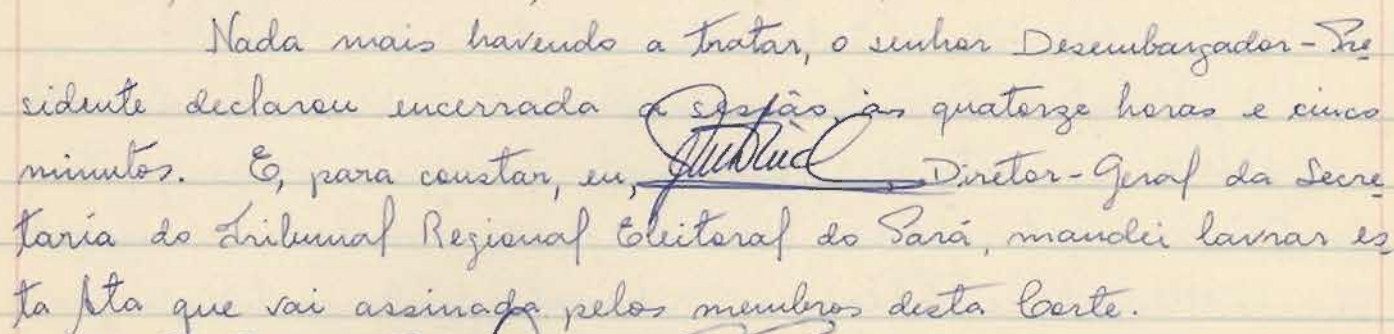 Nada mais havendo a tratar, o senhor Desembargador-Pre
sidente declarou encerrada a sessão, às quatorze horas e cinco
minutos. E, para constar, eu, Diretor-Geral da Secre
taria do Tribunal Regional Eleitoral do Pará, mandei lavrar es
ta Ata que vai assinada pelos membros desta Corte.